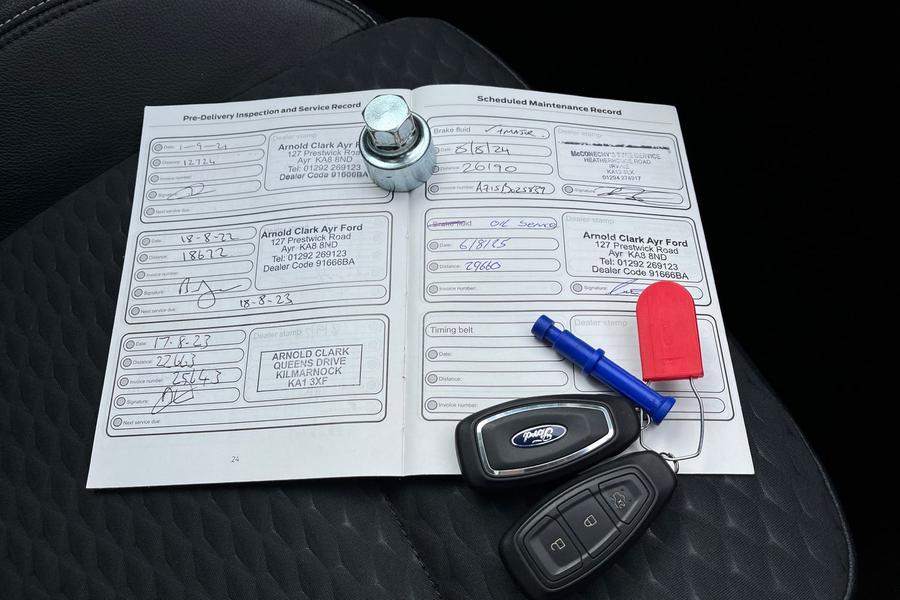 Pre-Delivery Inspection and Service Record
Date: 1-9-21
Distance: 12724
Invoice number:
Signature:
Next service due:
Dealer stamp
Arnold Clark Ayr F
127 Prestwick Road
Ayr KA8 8ND
Tel: 01292 269123
Dealer Code 91666BA
Date: 18-8-22
Distance: 18672
Invoice number:
Signature:
Next service due: 18-8-23
Arnold Clark Ayr Ford
127 Prestwick Road
Ayr KA8 8ND
Tel: 01292 269123
Dealer Code 91666BA
Date: 17.8.23
Distance: 22663
Invoice number: 25643
Signature:
Next service due:
Dealer stamp
ARNOLD CLARK
QUEENS DRIVE
KILMARNOCK
KA1 3XF
24
Scheduled Maintenance Record
Brake fluid ✓ + MAJOR.
Date: 8/8/24
Distance: 26190
Invoice number:
Dealer stamp
McCONECHY'S TYRE SERVICE
HEATHERHOUSE ROAD
IRVINE
KA12 8LX
01294 274917
Signature:
Brake fluid OIL SERVICE
Date: 6/8/25
Distance: 29660
Invoice number:
Dealer stamp
Arnold Clark Ayr Ford
127 Prestwick Road
Ayr KA8 8ND
Tel: 01292 269123
Dealer Code 91666BA
Signature:
Timing belt
Date:
Distance:
Invoice number:
Dealer stamp
Ford
2X